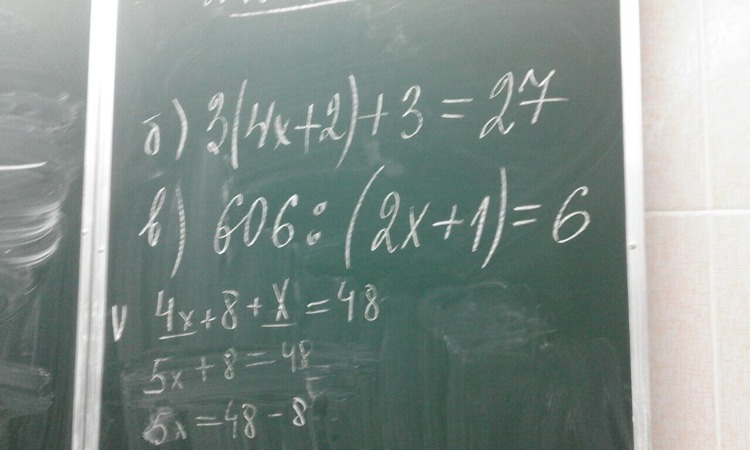 б) 3(4x+2)+3=27
в) 606:(2x+1)=6
V 4x+8+x=48
5x+8=48
5x=48-8